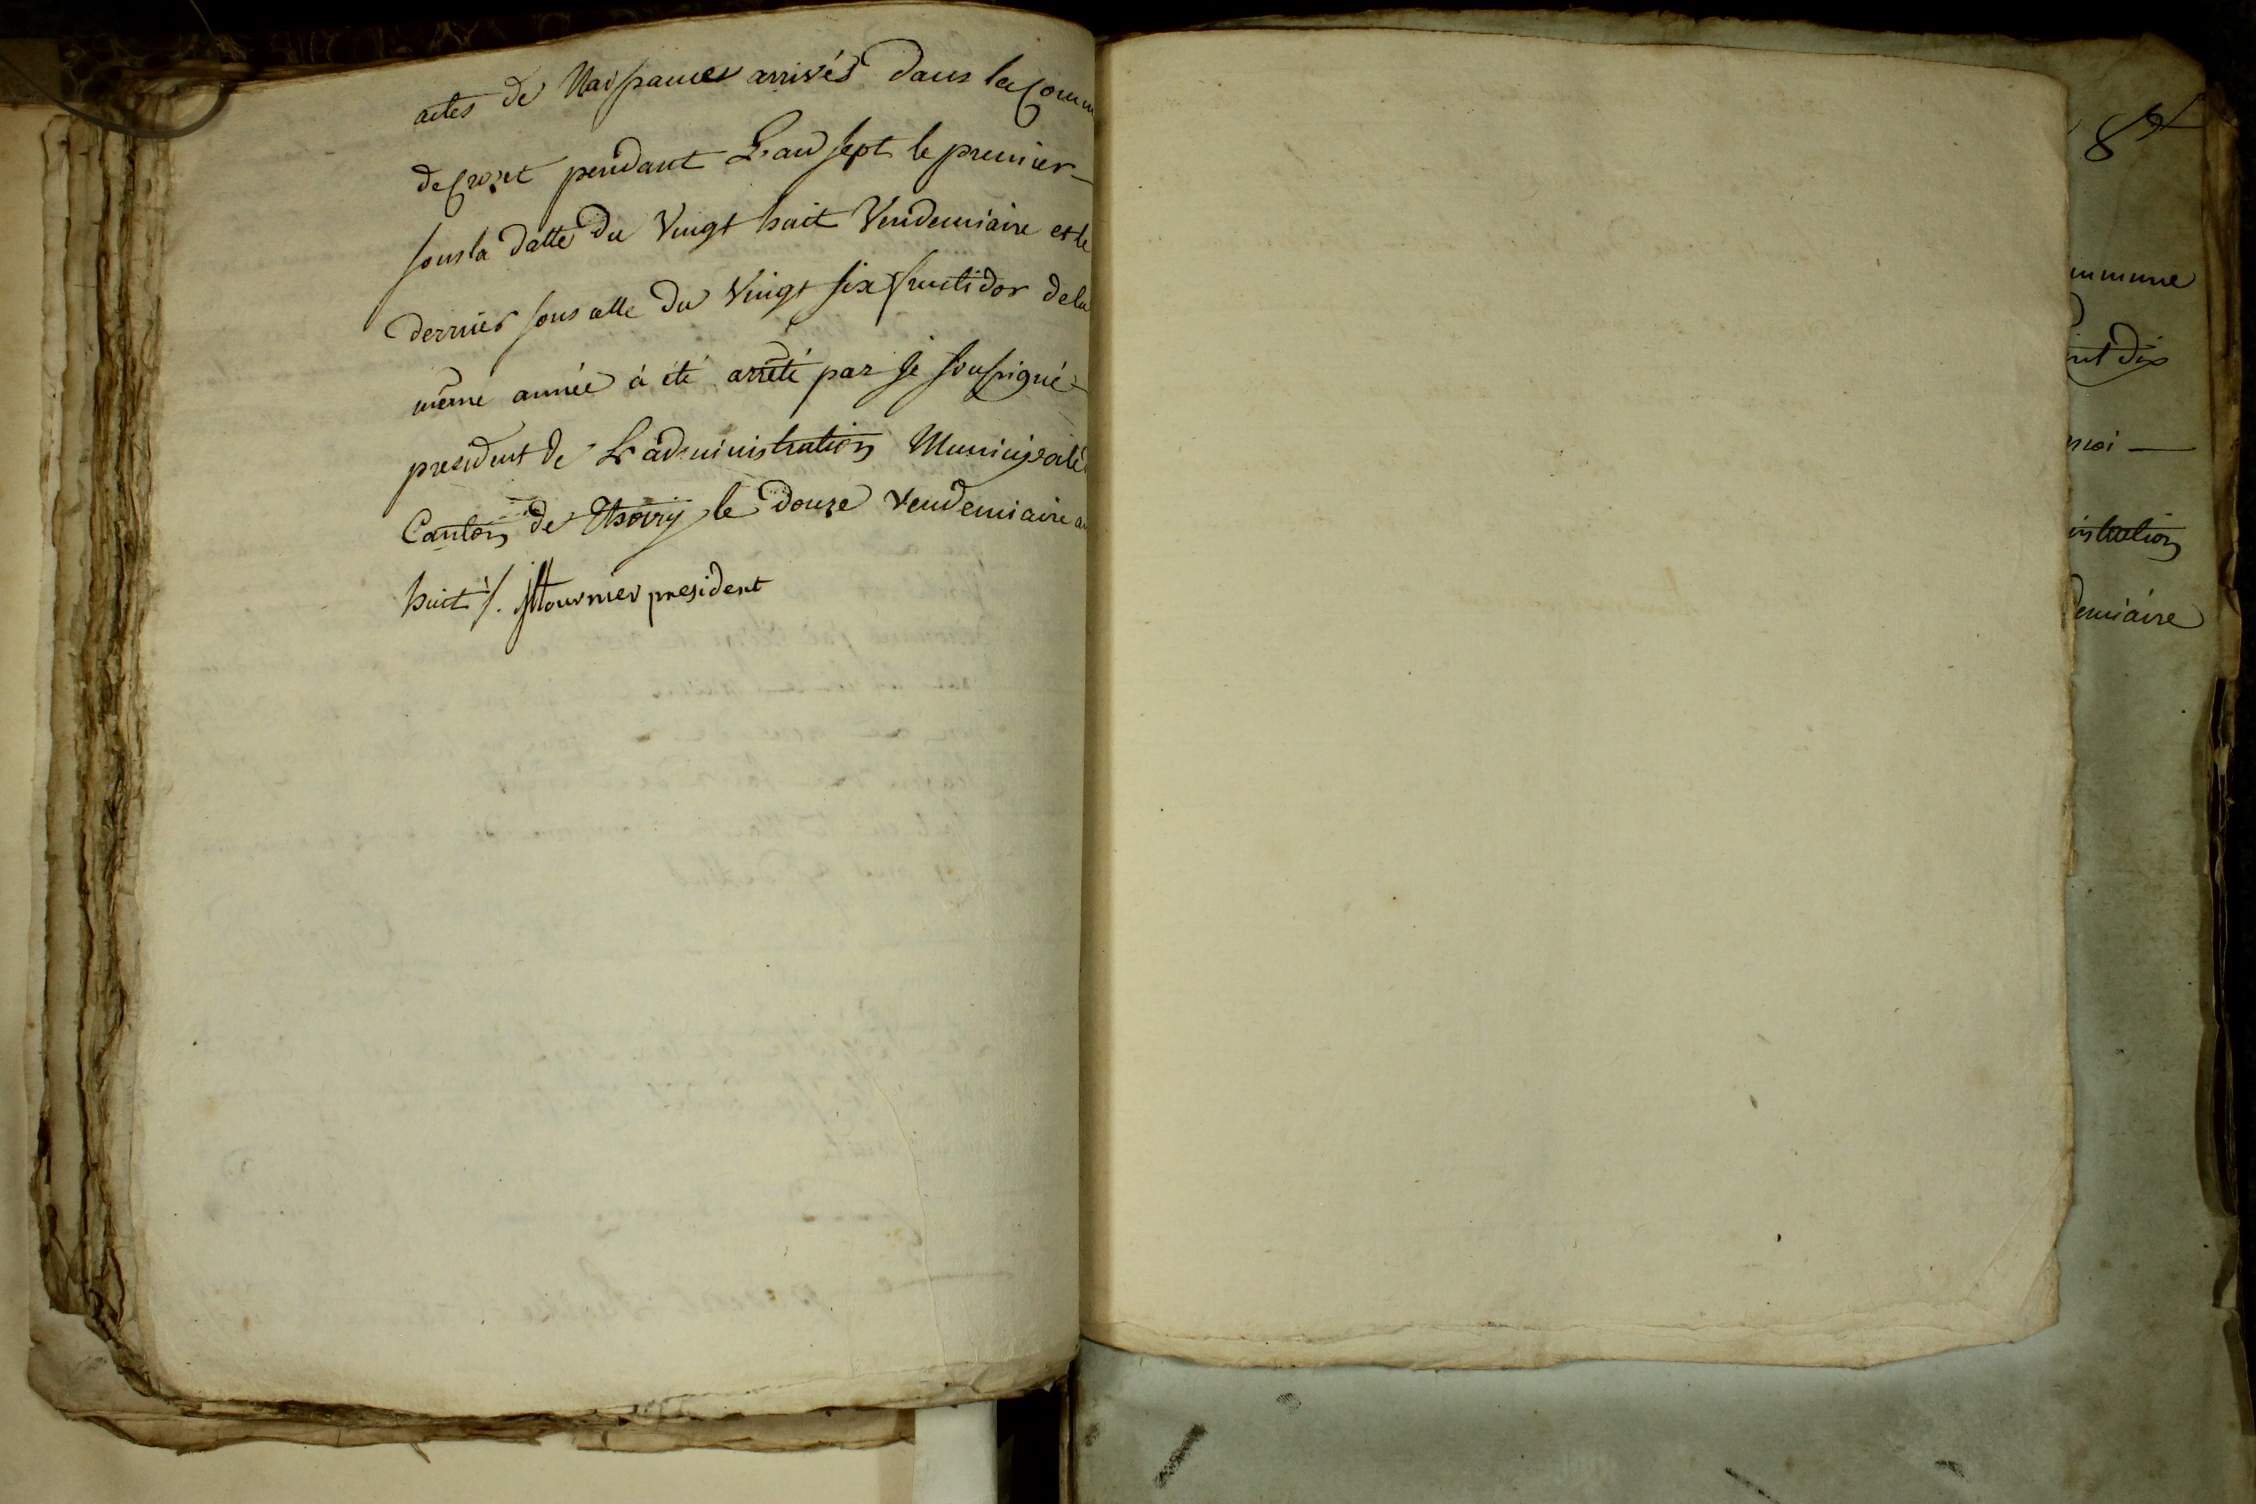 actes de Naissances arrivés dans la Comm
de Crozet pendant L'an sept le premier
sous la datte du Vingt huit Vendemiaire et le
dernier sous celle du Vingt six fructidor de la
même année à été arrêté par je soussigné
president de L'administration Municipale
Canton de Thoiry le douze Vendemiaire an
huit /. fournier president
8
mmune
dix
moi
istration
demiaire